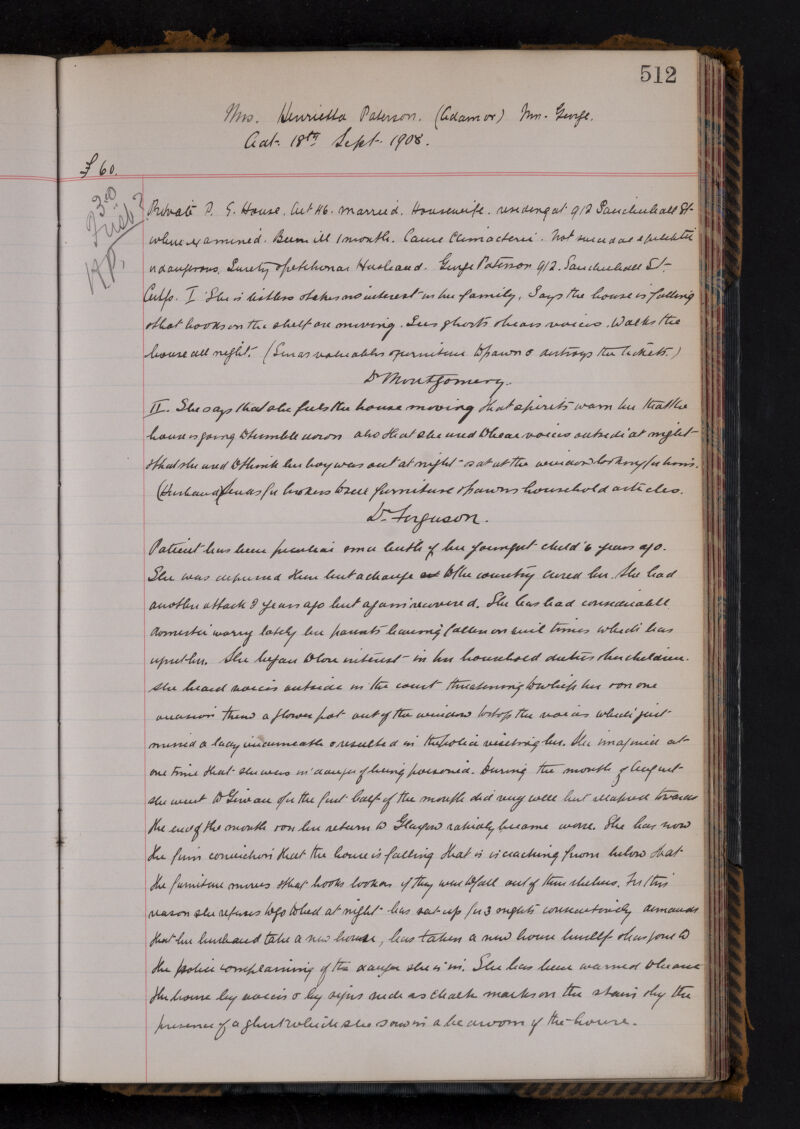 512
Mrs. Henrietta Paterson. (Adam or) Mrs. George.
Adt. 18th Sept. 1908.
£60.
Private P. G. House. Aet 46. Married. Housewife. residing at 912 Sauchiehall St-
where examined. Been ill 1 month. Cause Climacteric. Not suicidal epileptic
or dangerous. Surety & petitioner Husband. George Paterson 912. Sauchiehall St-
Certfs. I She is listless & takes no interest in her family. Says the house is falling
& that books on the shelf are moving. Sees ghosts & hears voices. Walks the
house all night. (Sends valuables & furniture to pawn & destroys the tickets.)
Dr Montgomery.
II. She says that she feels the house moving that spirits warn her that the
house is going to tumble down also that she used to hear voices outside at night-
& that she used to think her boy was out at night - & sat at the window looking for him.
(Husband) Sends for brokers to sell furniture & pawns household articles.
Dr Ferguson.
Patient has been peculiar since birth of her youngest child 6 years ago.
She was depressed then but a change to the country cured her. She had
another attack 2 years ago but again recovered. She has had considerable
domestic worry lately her parents having fallen on evil times which has
upset her. She began to lose interest in her household duties & her children.
She heard voices outside in the court threatening to whip her & on one
occasion threw a flower pot out of the window to stop the voices which just
missed a lady underneath & resulted in the police visiting her. She imagined at
one time that she was in danger of being poisoned. During the month of August
she went to Girvan & for the first half of the month did very well but relapsed towards
the end of the month & on her return to Glasgow rapidly became worse. She has now
the firm conviction that the house is falling that it is cracking from below that
the furniture moves & that books look as if they were to fall out of their shelves. For this
reason she refuses to go to bed at night - has sat up for 3 nights consecutively demands
that her husband take a new house, has taken a new house herself & has gone to
the police complaining of the danger she is in. She has been warned to leave
the house by voices & by signs such as chalk marks on the stairs & by the
presence of a ghost which she saw in a bedroom of the house.